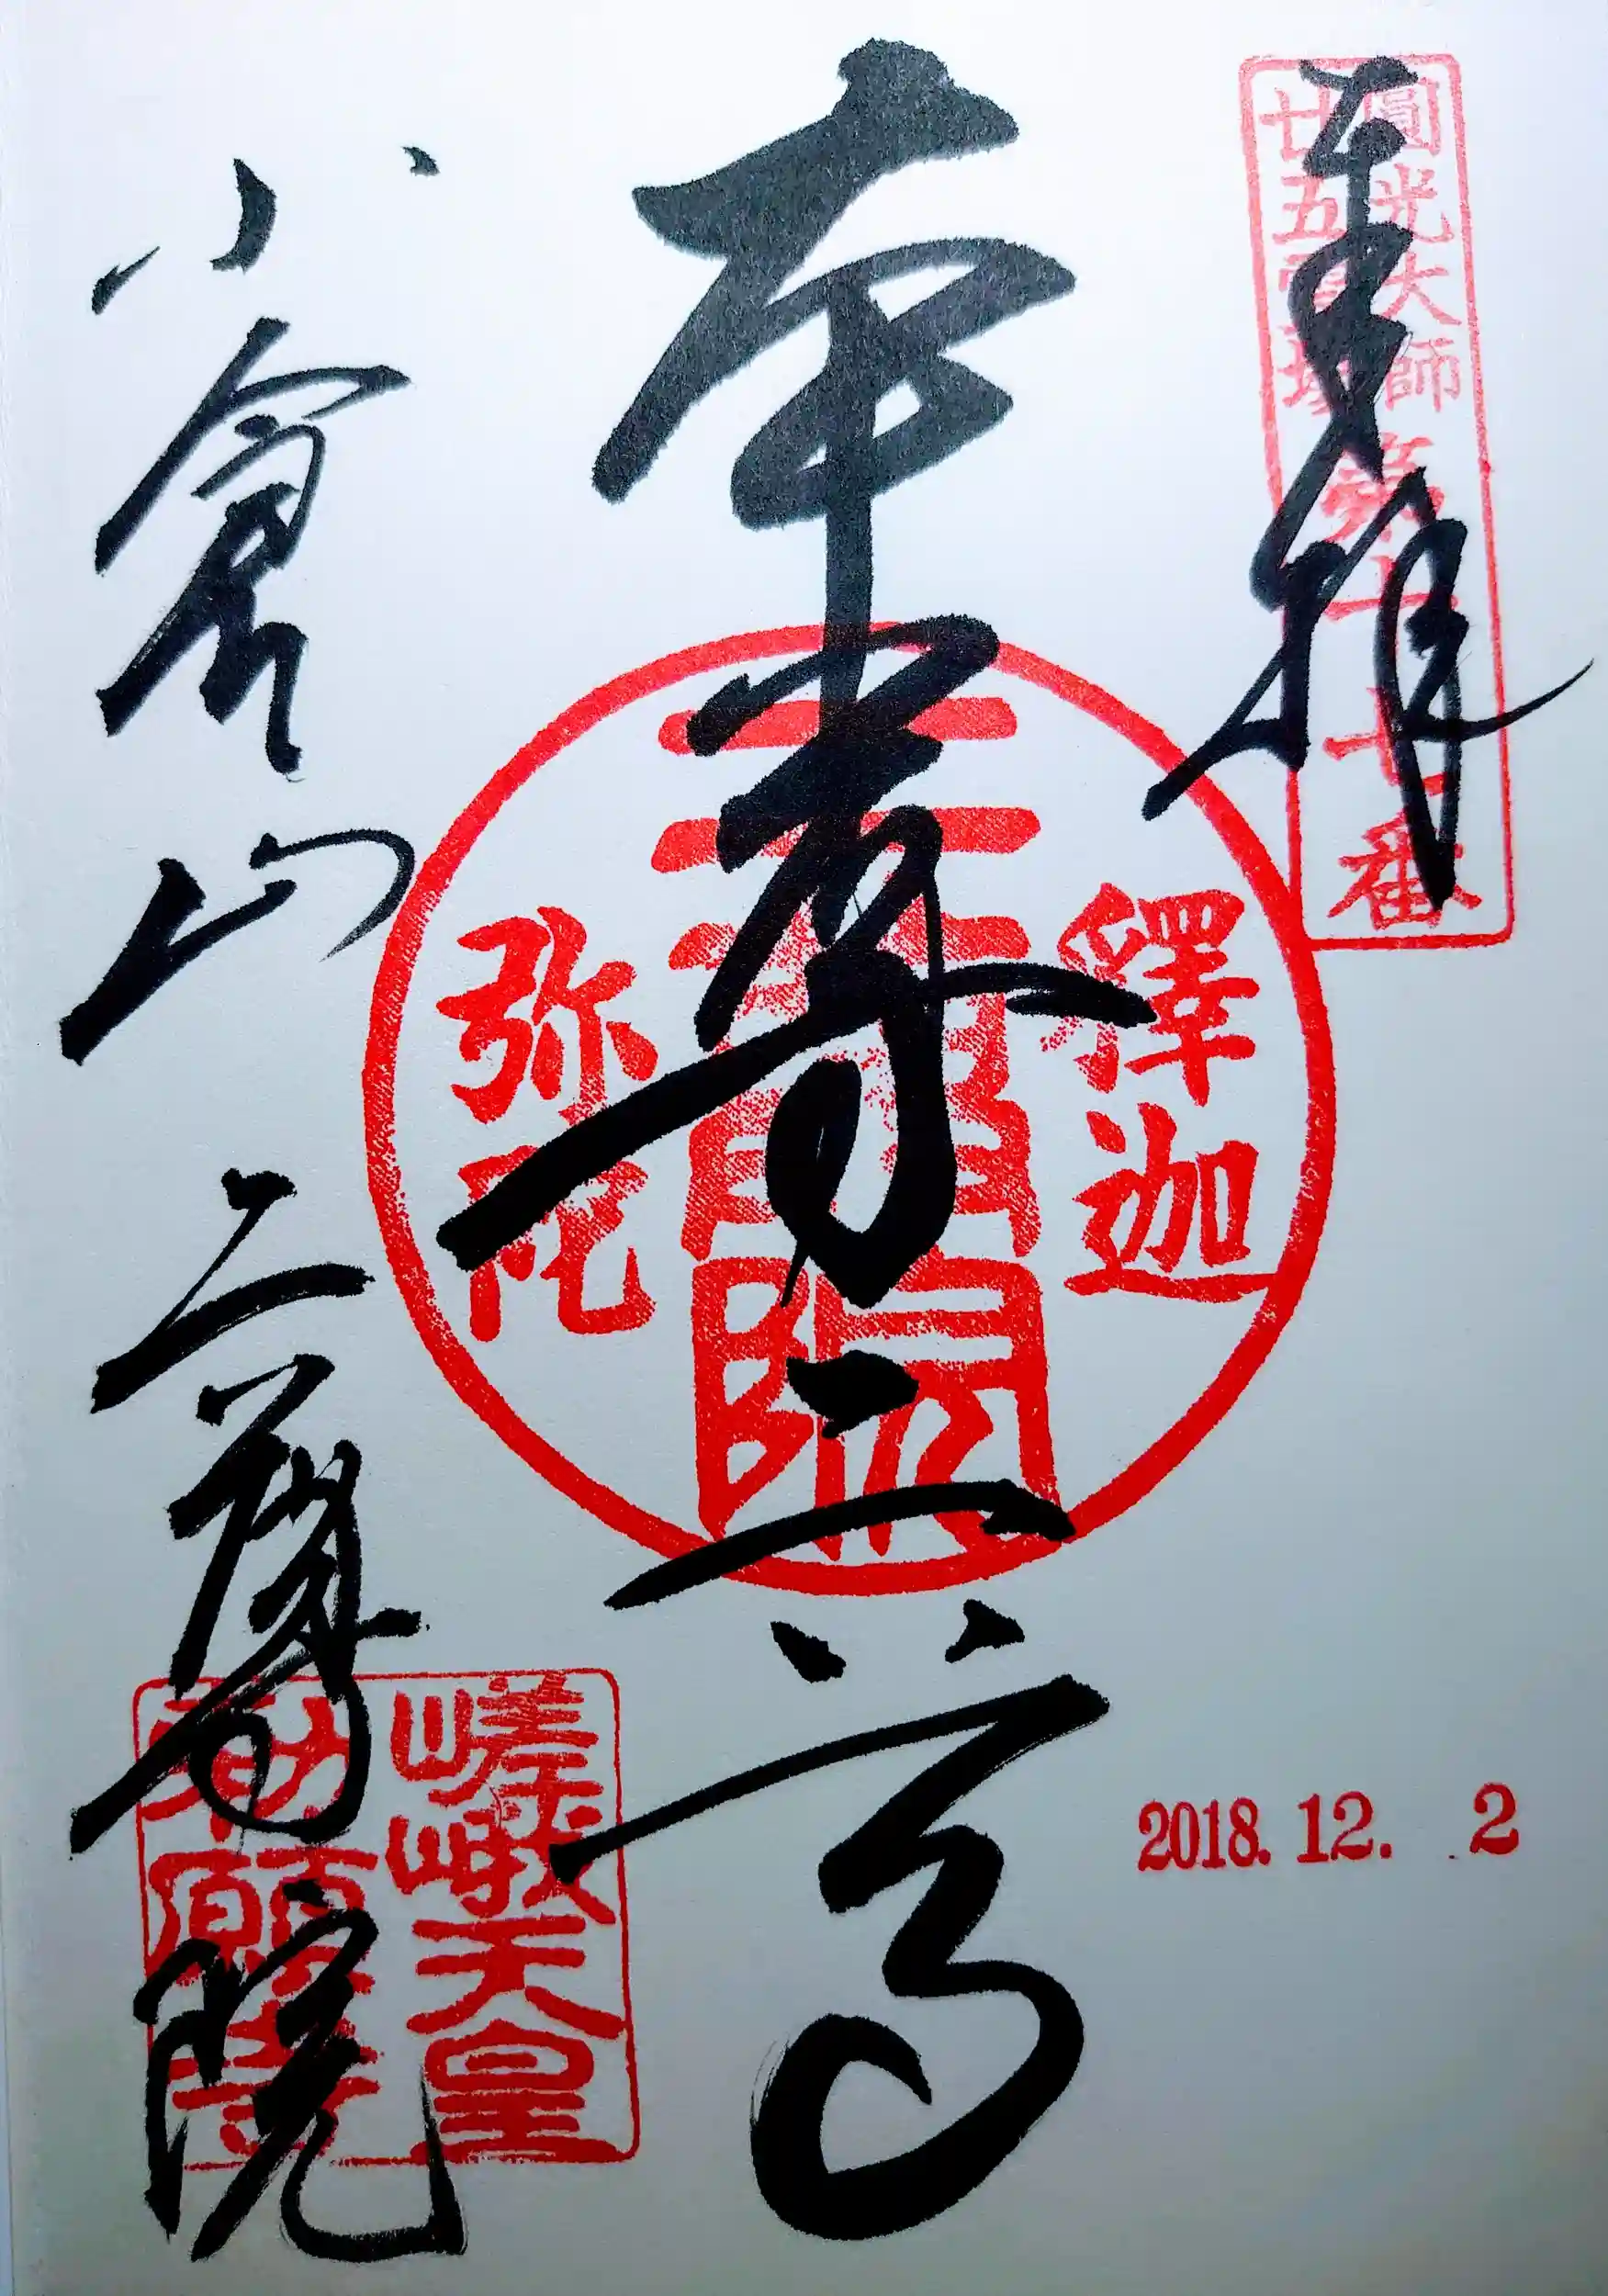 奉拝
圓光大師
廿五霊場
第十七番
本尊二尊
釋迦
二尊院
弥陀
2018. 12. 2
小倉山 二尊院
嵯峨天皇
勅願寺